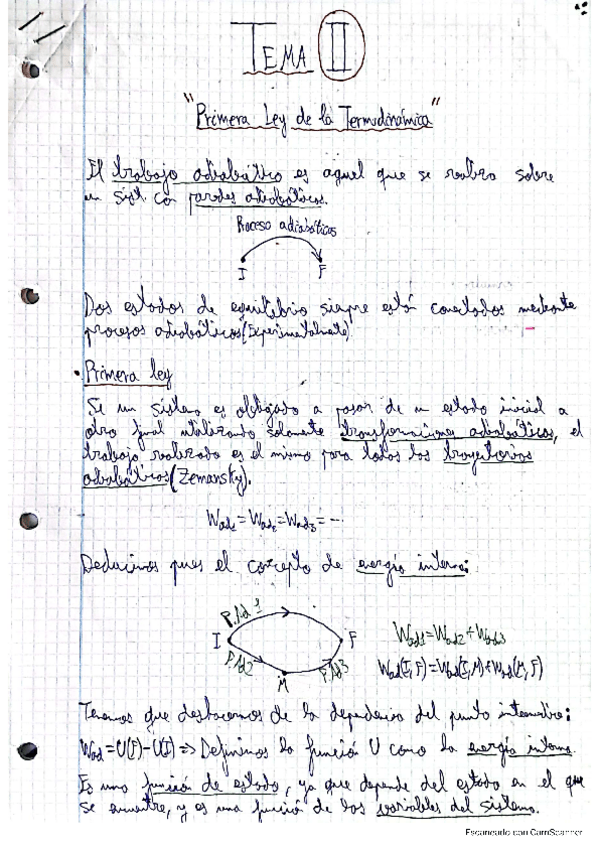 TEMA II
"Primera Ley de la Termodinámica"
El trabajo adiabático es aquel que se realiza sobre
un sist. con paredes adiabáticas.
Proceso adiabáticos
I F
Dos estados de equilibrio siempre está conectados mediante
procesos adiabáticos (Experimentalmente)
• Primera ley
Si un sistema es obligado a pasar de un estado inicial a
otro final utilizando solamente transformaciones adiabáticas, el
trabajo realizado es el mismo para todas las trayectorias
adiabáticas (Zemansky).
Wad1 = Wad2 = Wad3 = ...
Deducimos pues el concepto de energía interna:
P.Ad 1
I F
P.Ad2 P.Ad3
M
Wad1 = Wad2 + Wad3
Wad(I,F) = Wad(I,M) + Wad(M,F)
Tenemos que deshacernos de la dependencia del punto intermedio:
Wad = U(F) - U(I) => Definimos la función U como la energía interna.
Es una función de estado, ya que depende del estado en el que
se encuentre, y es una función de las variables del sistema.
Escaneado con CamScanner